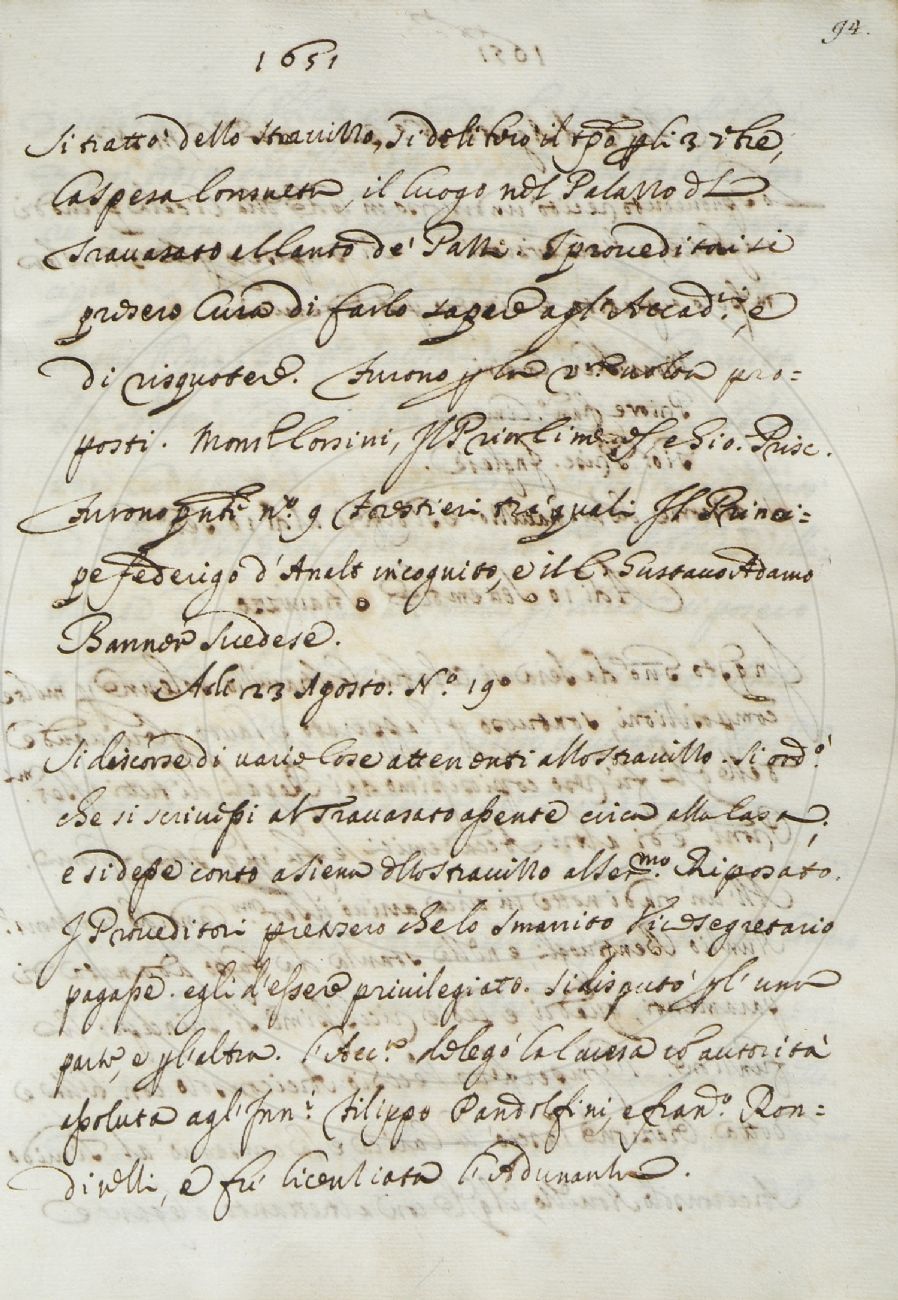 94.
1651
Si trattò dello stravizzo, si deliberò il tpō p gli 3 7bre,
la spesa consueta, il luogo nel Palazzo del
Travasato al Canto de' Pazzi. I proveditori si
presero cura di farlo sapere agl'Accad.ci, e
di risquotere. Furono p la pro=
posti. Mons.r Corsini, Il Prior Ximenes, e Gio. Price.
Furono pnti n.o 9 forestieri tra' quali Il Princi=
pe Federigo d'Analt incognito, e il C. Gustavo Adamo
Banner Suedese.
Adi 23 Agosto. N.o 19
Si discorse di varie cose attenenti allo stravizzo. Si ord.ò
che si scrivessi al Travasato assente circa alla casa,
e si desse conto a Siena dello stravizzo al Ser.mo Riposato.
I Proveditori presero che lo Smarrito Vicesegretario
pagasse. egli d'essere privilegiato. si disputò p l'una
parte, e p l'altra. l'Acc.a delegò la causa cō autorità
assoluta agl'Inn.i Filippo Pandolfini, e Fran.o Ron=
dinelli, e fù licenziata l'Adunanza.